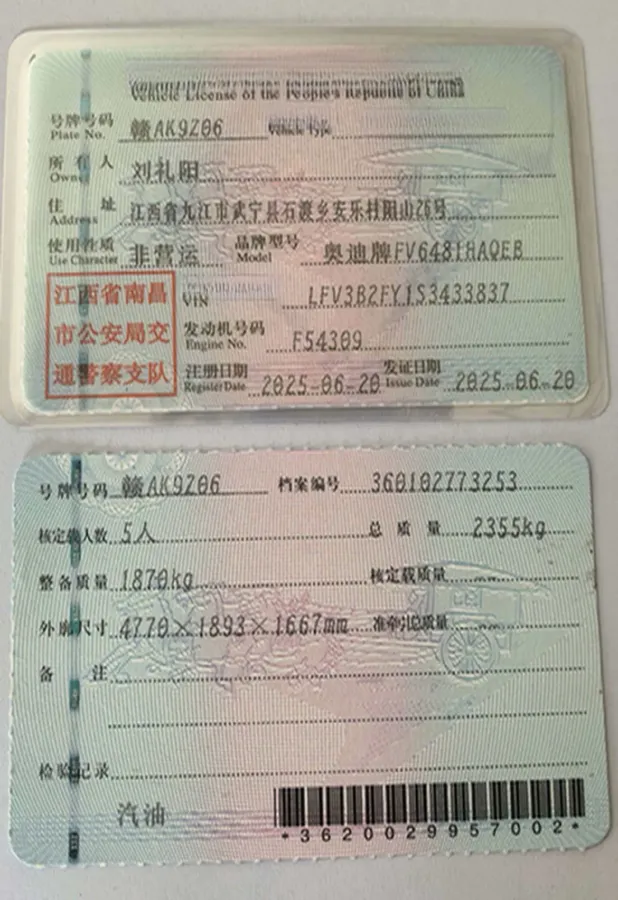 Vehicle License of the People's Republic of China
号牌号码 赣AK9Z06
Plate No.
所有人 刘礼阳
Owner
住址 江西省九江市武宁县石渡乡安乐村阳山26号
Address
使用性质 非营运 品牌型号 奥迪牌FV6481HAQEB
Use Character Model
江西省南昌
市公安局交
通警察支队
VIN LFV3B2FY1S3433837
发动机号码 F54309
Engine No.
注册日期 2025-06-20 发证日期 2025-06-20
Register Date Issue Date
号牌号码 赣AK9Z06 档案编号 360102773253
核定载人数 5人 总质量 2355kg
整备质量 1870kg 核定载质量 --
外廓尺寸 4770×1893×1667mm 准牵引总质量 --
备注
检验记录
汽油
*3620029957002*